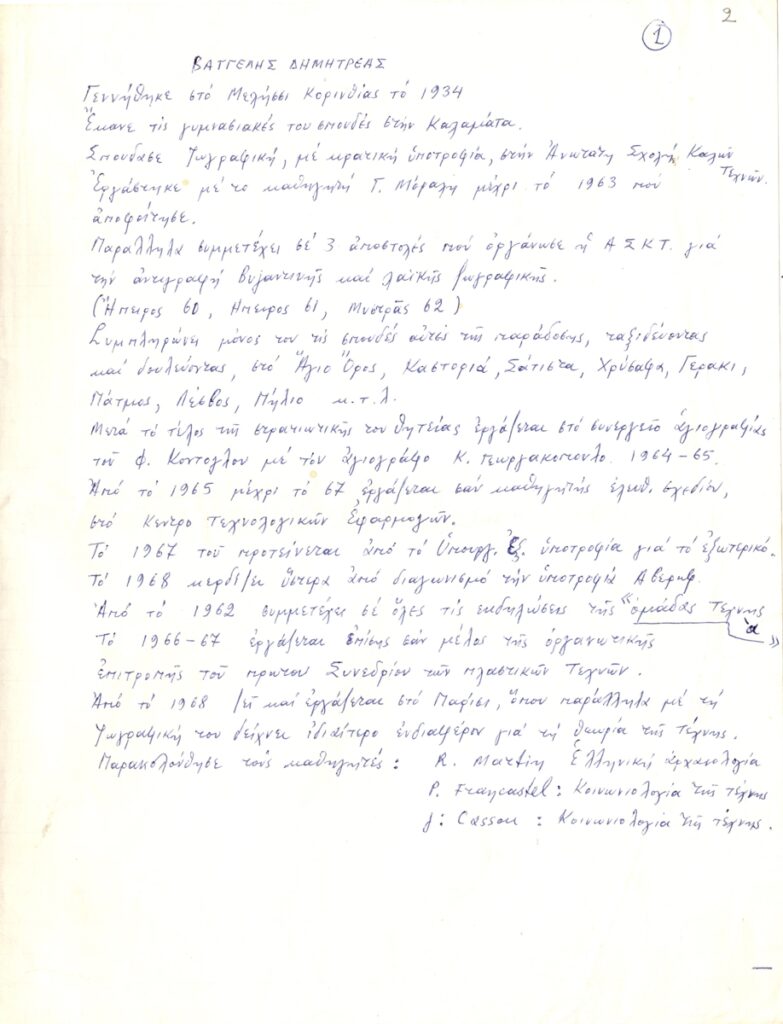 2
1
ΒΑΓΓΕΛΗΣ ΔΗΜΗΤΡΕΑΣ
Γεννήθηκε στό Μελίσσι Κορινθίας τό 1934
Ἔκανε τίς γυμνασιακές του σπουδές στήν Καλαμάτα.
Σπούδασε ζωγραφική, μέ κρατική ὑποτροφία, στήν Ἀνωτάτη Σχολή Καλῶν Τεχνῶν.
Ἐργάστηκε μέ το καθηγητή Γ. Μόραλη μέχρι τό 1963 πού
ἀποφοίτησε.
Παράλληλα συμμετέχει σέ 3 ἀποστολές πού ὀργάνωσε ἡ ΑΣΚΤ. γιά
τήν ἀντιγραφή Βυζαντινῆς καί λαϊκῆς ζωγραφικῆς.
(Ἤπειρος 60, Ηπειρος 61, Μυστρᾶς 62)
Συμπληρώνει μόνος του τίς σπουδές αὐτές τῆς παράδοσης, ταξιδεύοντας
καί δουλεύοντας, στό Ἅγιο Ὄρος, Καστοριά, Σάτιστα, Χρύσαφα, Γεράκι,
Πάτμος, Λέσβος, Πήλιο κ.τ.λ.
Μετά τό τέλος τῆς στρατιωτικῆς του θητείας ἐργάζεται στό συνεργεῖο ἁγιογραφίας
τοῦ Φ. Κόντογλου μέ τόν ἁγιογράφο Κ. Γεωργακόπουλο. 1964-65.
Ἀπό τό 1965 μέχρι τό 67 ἐργάζεται σάν καθηγητής ἐλευθ. σχεδίου,
στό Κέντρο Τεχνολογικῶν Ἐφαρμογῶν.
Τό 1967 τοῦ προτείνεται ἀπό τό Ὑπουργ. Ἐξ. ὑποτροφία γιά τό ἐξωτερικό.
Τό 1968 κερδίζει ὕστερα ἀπό διαγωνισμό τήν ὑποτροφία Αβερωφ.
Ἀπό τό 1962 συμμετέχει σέ ὅλες τίς εκδηλώσεις τῆς "ὁμάδας Τέχνης ἀ"
Τό 1966-67 ἐργάζεται ἐπίσης σάν μέλος τῆς ὀργανωτικῆς
ἐπιτροπῆς τοῦ πρώτου Συνεδρίου τῶν πλαστικῶν Τεχνῶν.
Ἀπό τό 1968 ζεῖ καί ἐργάζεται στό Παρίσι, ὅπου παράλληλα μέ τή
ζωγραφική του δείχνει ἰδιαίτερο ἐνδιαφέρον γιά τή θεωρία τῆς τέχνης.
Παρακολούθησε τούς καθηγητές: R. Martin Ἑλληνική ἀρχαιολογία
P. Francastel: Κοινωνιολογία τῆς τέχνης
J: Cassou : Κοινωνιολογία τῆς τέχνης.